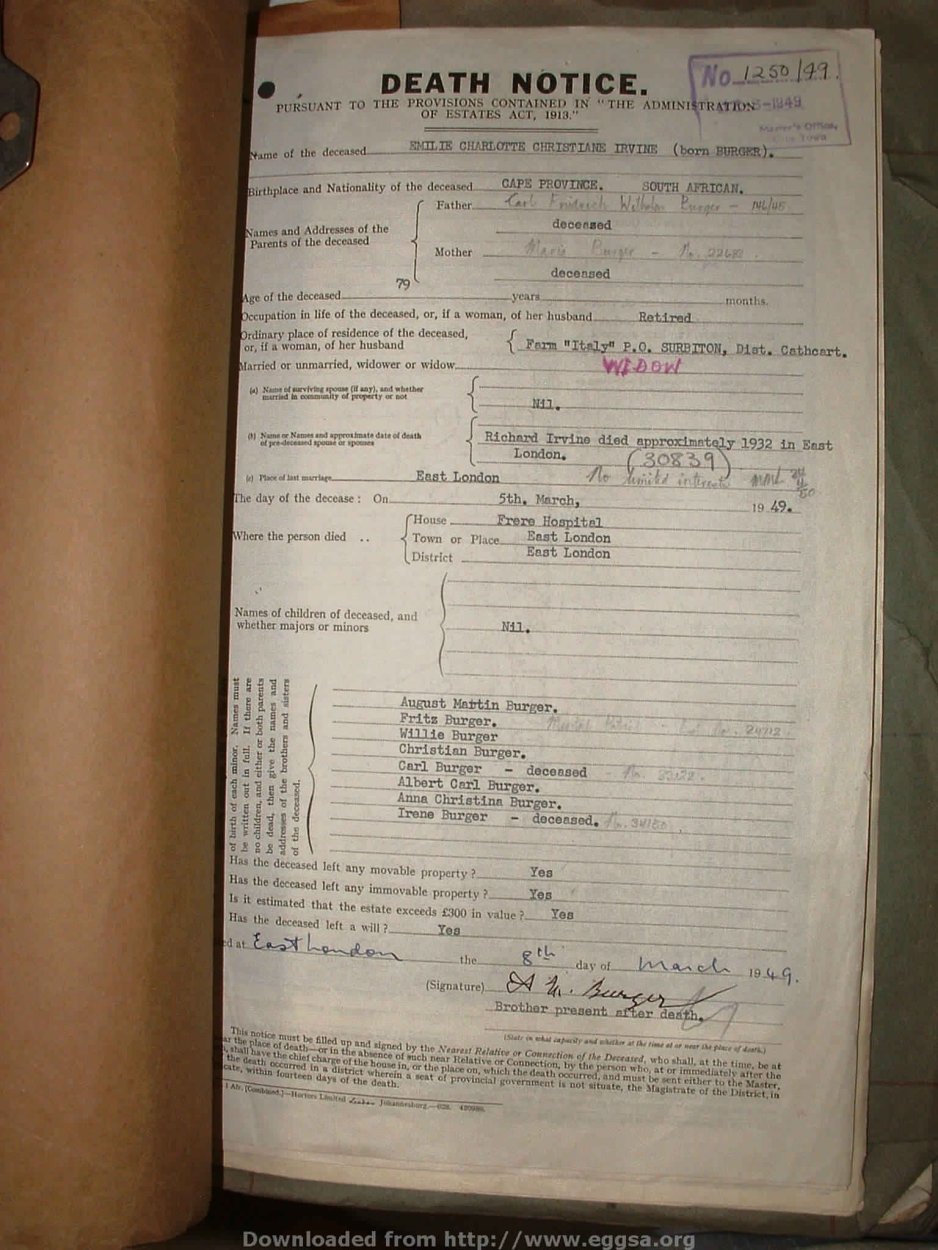 DEATH NOTICE.
No 1250/49.
PURSUANT TO THE PROVISIONS CONTAINED IN "THE ADMINISTRATION
OF ESTATES ACT, 1913."
Master's Office
Name of the deceased EMILIE CHARLOTTE CHRISTIANE IRVINE (born BURGER).
Birthplace and Nationality of the deceased CAPE PROVINCE. SOUTH AFRICAN.
Names and Addresses of the Parents of the deceased
Father Carl Friedrich Wilhelm Burger -
deceased
Mother Maria Burger - No.
deceased
Age of the deceased 79 years months.
Occupation in life of the deceased, or, if a woman, of her husband Retired
Ordinary place of residence of the deceased,
or, if a woman, of her husband
Farm "Italy" P.O. SURBITON, Dist. Cathcart.
Married or unmarried, widower or widow WIDOW
(a) Name of surviving spouse (if any), and whether
married in community of property or not
Nil.
(b) Name or Names and approximate date of death
of pre-deceased spouse or spouses
Richard Irvine died approximately 1932 in East
London. (30839)
No limited interests
(c) Place of last marriage East London
The day of the decease: On 5th. March, 1949.
Where the person died ..
House Frere Hospital
Town or Place East London
District East London
Names of children of deceased, and
whether majors or minors
Nil.
of birth of each minor. Names must
be written out in full. If there are
no children, and either or both parents
be dead, then give the names and
addresses of the brothers and sisters
of the deceased.
August Martin Burger.
Fritz Burger.
Willie Burger
Christian Burger.
Carl Burger - deceased
Albert Carl Burger.
Anna Christina Burger.
Irene Burger - deceased.
Has the deceased left any movable property? Yes
Has the deceased left any immovable property? Yes
Is it estimated that the estate exceeds £300 in value? Yes
Has the deceased left a will? Yes
ed at East London the 8th day of March 1949.
(Signature) A M. Burger
Brother present after death.
(State in what capacity and whether at the time at or near the place of death.)
This notice must be filled up and signed by the Nearest Relative or Connection of the Deceased, who shall, at the time, be at
ar the place of death—or in the absence of such near Relative or Connection, by the person who, at or immediately after the
, shall have the chief charge of the house in, or the place on, which the death occurred, and must be sent either to the Master,
the death occurred in a district wherein a seat of provincial government is not situate, the Magistrate of the District, in
cate, within fourteen days of the death.
(Combined.)—Hortors Limited Johannesburg.
Downloaded from http://www.eggsa.org